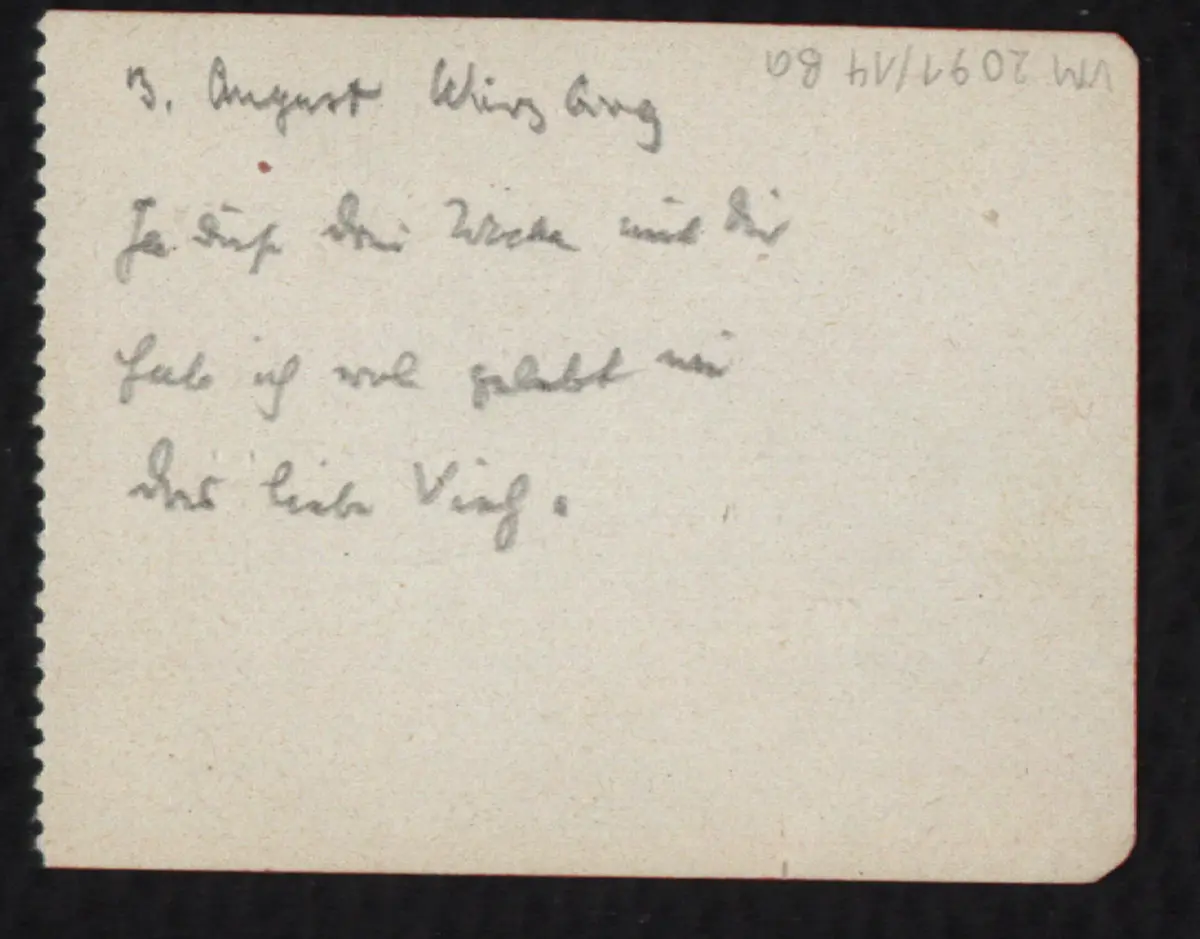 VM 2091/14 Ba
3. August Würzburg
Ja diese drei Woche mit dir
hab ich wol gelebt wie
das liebe Vieh.